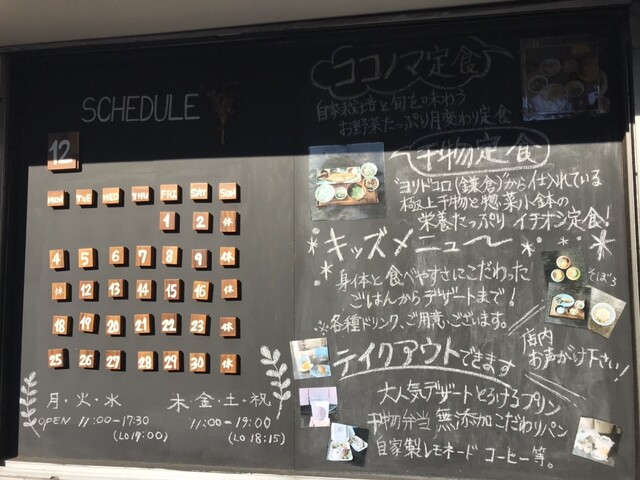 SCHEDULE
12
MON TUE WED THU FRI SAT SUN
1 2 休
4 5 6 7 8 9 休
休 12 13 14 15 16 休
18 19 20 21 22 23 休
25 26 27 28 29 30 休
月・火・水
OPEN 11:00-17:30
(LO17:00)
木・金・土・祝
11:00-19:00
(LO 18:15)
ココノマ定食
自家栽培と旬を味わう
お野菜たっぷり月変わり定食
干物定食
"ヨリドコロ(鎌倉)"から仕入れている
極上干物と惣菜小鉢の
栄養たっぷり イチオシ定食!
キッズメニュー
身体と食べやすさにこだわった
ごはんからデザートまで!
※各種ドリンク、ご用意ございます。
そぼろ
店内
お声がけ下さい!
テイクアウトできます
大人気デザートとろけるプリン
干物弁当 無添加こだわりパン
自家製レモネード コーヒー等。